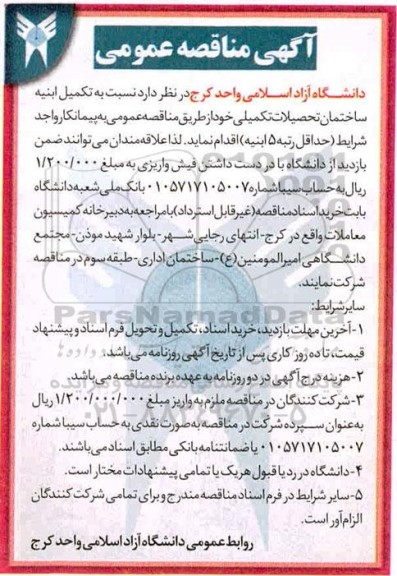 آگهی مناقصه عمومی
دانشگاه آزاد اسلامی واحد کرج در نظر دارد نسبت به تکمیل ابنیه
ساختمان تحصیلات تکمیلی خود از طریق مناقصه عمومی به پیمانکار واجد
شرایط (حداقل رتبه ۵ ابنیه) اقدام نماید. لذا علاقه مندان می توانند ضمن
بازدید از دانشگاه با در دست داشتن فیش واریزی به مبلغ ۱/۲۰۰/۰۰۰
ریال به حساب سیبا شماره ۰۱۰۵۷۱۷۱۰۵۰۰۷ بانک ملی شعبه دانشگاه
بابت خرید اسناد مناقصه (غیر قابل استرداد) با مراجعه به دبیرخانه کمیسیون
معاملات واقع در کرج- انتهای رجایی شهر- بلوار شهید موذن- مجتمع
دانشگاهی امیرالمومنین (ع)- ساختمان اداری- طبقه سوم در مناقصه
شرکت نمایند.
سایر شرایط:
۱- آخرین مهلت بازدید، خرید اسناد، تکمیل و تحویل فرم اسناد و پیشنهاد
قیمت، تا ده روز کاری پس از تاریخ آگهی روزنامه می باشد.
۲- هزینه درج آگهی در دو روزنامه به عهده برنده مناقصه می باشد.
۳- شرکت کنندگان در مناقصه ملزم به واریز مبلغ ۱/۲۰۰/۰۰۰/۰۰۰ ریال
به عنوان سپرده شرکت در مناقصه به صورت نقدی به حساب سیبا شماره
۰۱۰۵۷۱۷۱۰۵۰۰۷ یا ضمانتنامه بانکی مطابق اسناد می باشند.
۴- دانشگاه در رد یا قبول هر یک یا تمامی پیشنهادات مختار است.
۵- سایر شرایط در فرم اسناد مناقصه مندرج و برای تمامی شرکت کنندگان
الزام آور است.
روابط عمومی دانشگاه آزاد اسلامی واحد کرج
ParsNamadData